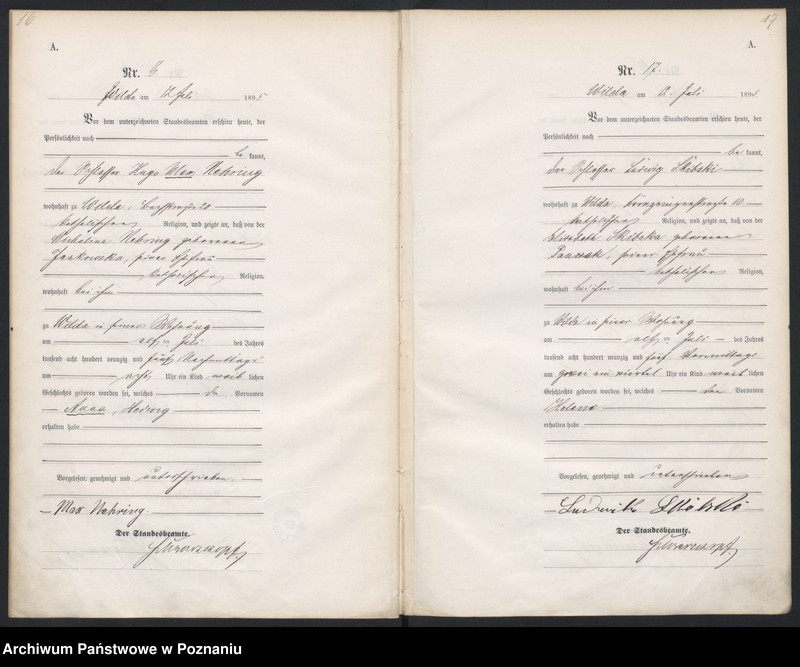 16
A.
Nr. 6
Wilda am 12 Juli 1895
Vor dem unterzeichneten Standesbeamten erschien heute, der
Persönlichkeit nach
be kannt,
der Schlosser Hugo Max Nehring
wohnhaft zu Wilda,
katholischer Religion, und zeigte an, daß von der
Michalina Nehring geborenen
Jankowska, seiner Ehefrau
katholischer Religion,
wohnhaft bei ihm
zu Wilda in seiner Wohnung
am elften Juli des Jahres
tausend acht hundert neunzig und fünf Nachmittags
um acht Uhr ein Kind weib lichen
Geschlechts geboren worden sei, welches die Vornamen
Anna, Hedwig
erhalten habe
Vorgelesen, genehmigt und unterschrieben
Max Nehring.
Der Standesbeamte.
17
A.
Nr. 17.
Wilda am Juli 189
Vor dem unterzeichneten Standesbeamten erschien heute, der
Persönlichkeit nach
be kannt,
der Schlosser Ludwig Skibski
wohnhaft zu Wilda,
katholischer Religion, und zeigte an, daß von der
Elisabeth Skibska geborenen
seiner Ehefrau
katholischer Religion,
wohnhaft bei ihm
zu Wilda in seiner Wohnung
am elften Juli des Jahres
tausend acht hundert neunzig und fünf Vormittags
um ein viertel Uhr ein Kind weib lichen
Geschlechts geboren worden sei, welches den Vornamen
Helene
erhalten habe
Vorgelesen, genehmigt und unterschrieben
Ludwik Skibski
Der Standesbeamte.
Archiwum Państwowe w Poznaniu